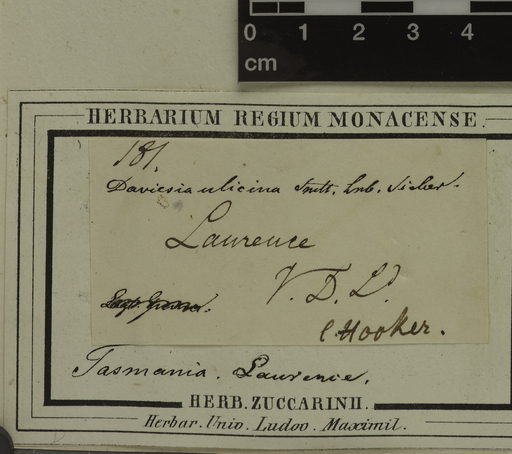 0 1 2 3 4
cm
HERBARIUM REGIUM MONACENSE.
181.
Daviesia ulicina Smth. hrb. Sieber.
Laurence
V. D. L.
C. Hooker.
Tasmania. Laurence.
HERB. ZUCCARINII.
Herbar. Univ. Ludov. Maximil.